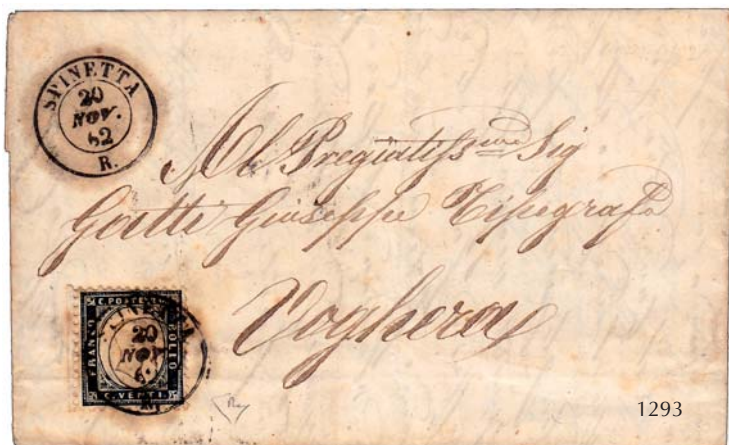 SPINETTA
20
NOV.
62
R.
Al Pregiatiss.mo Sig
Giuseppe Tipografo
Voghera
C. POSTE
FRANCO BOLLO
20
NOV
6
C. VENTI.
1293